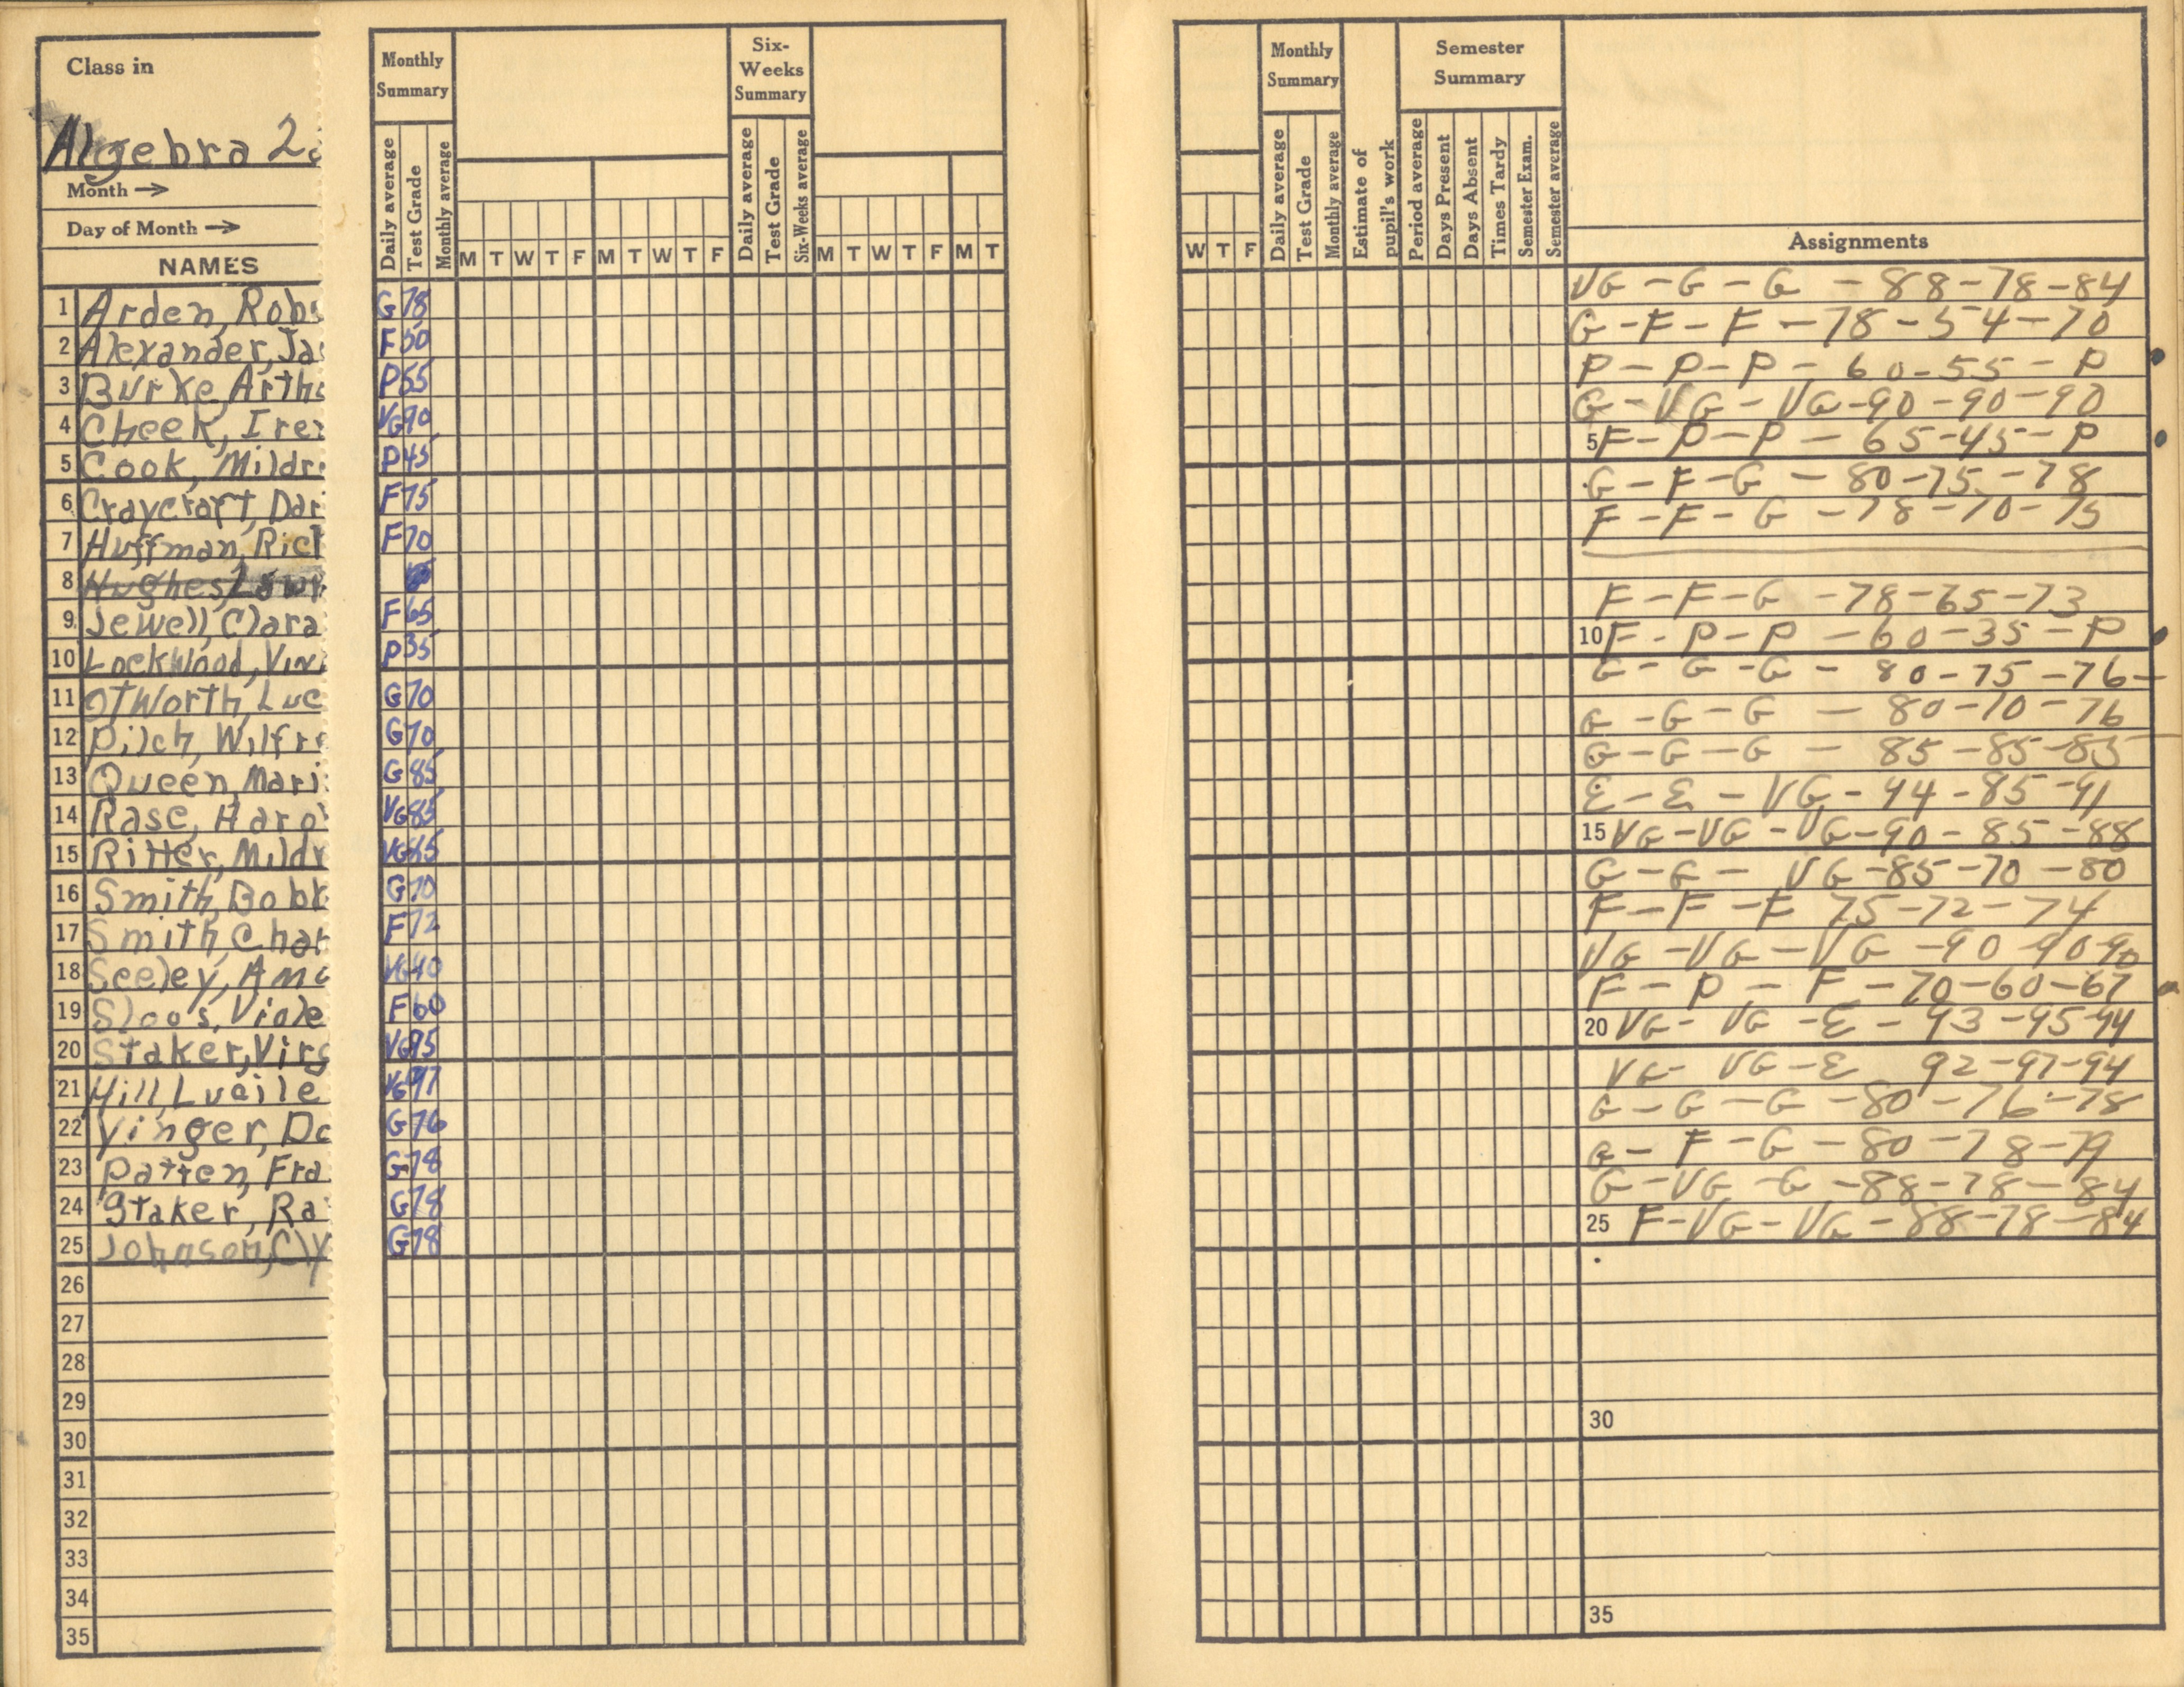 Class in
Algebra 2
Month →
Day of Month →
NAMES
Monthly Summary
Daily average
Test Grade
Monthly average
M T W T F M T W T F
Six-Weeks Summary
Daily average
Test Grade
Six-Weeks average
M T W T F M T
W T F
Monthly Summary
Daily average
Test Grade
Monthly average
Estimate of pupil's work
Semester Summary
Period average
Days Present
Days Absent
Times Tardy
Semester Exam.
Semester average
Assignments
1 Arden, Rob G 78 VG - G - G - 88-78-84
2 Alexander, Ja F 50 G-F-F-78-54-70
3 Burke, Arth P 55 P-P-P-60-55-P
4 Cheek, Ire VG 90 G-VG-VG-90-90-90
5 Cook, Mildr P 45 5 F-P-P-65-45-P
6 Craycraft, Dar F 75 G-F-G-80-75-78
7 Huffman, Ric F 70 F-F-G-78-70-75
8 Hughes,
9 Jewell, Clara F 65 F-F-G-78-65-73
10 Lockwood, Vin P 35 10 F-P-P-60-35-P
11 Otworth, Luc G 70 G-G-G-80-75-76-
12 Pilch, Wilfr G 70 G-G-G-80-70-76
13 Queen, Mari G 85 G-G-G-85-85-85
14 Rase, Haro VG 85 E-E-VG-94-85-91
15 Ritter, Mildr VG 15 VG-VG-VG-90-85-88
16 Smith, Bobb G 70 G-G-VG-85-70-80
17 Smith, Char F 72 F-F-F 75-72-74
18 Seeley, Am VG VG-VG-VG-90-90-90
19 Sloos, Viole F 60 F-P-F-70-60-67
20 Staker, Virg VG 95 20 VG-VG-E-93-95-94
21 Hill, Lucile VG 97 VG-VG-E 92-97-94
22 Yinger, Do G 76 G-G-G-80-76-78
23 Patten, Fra G 78 G-F-G-80-78-79
24 Staker, Ra G 78 G-VG-G-88-78-84
25 Johnson, Cly G 78 25 F-VG-VG-88-78-84
26
27
28
29
30 30
31
32
33
34
35 35